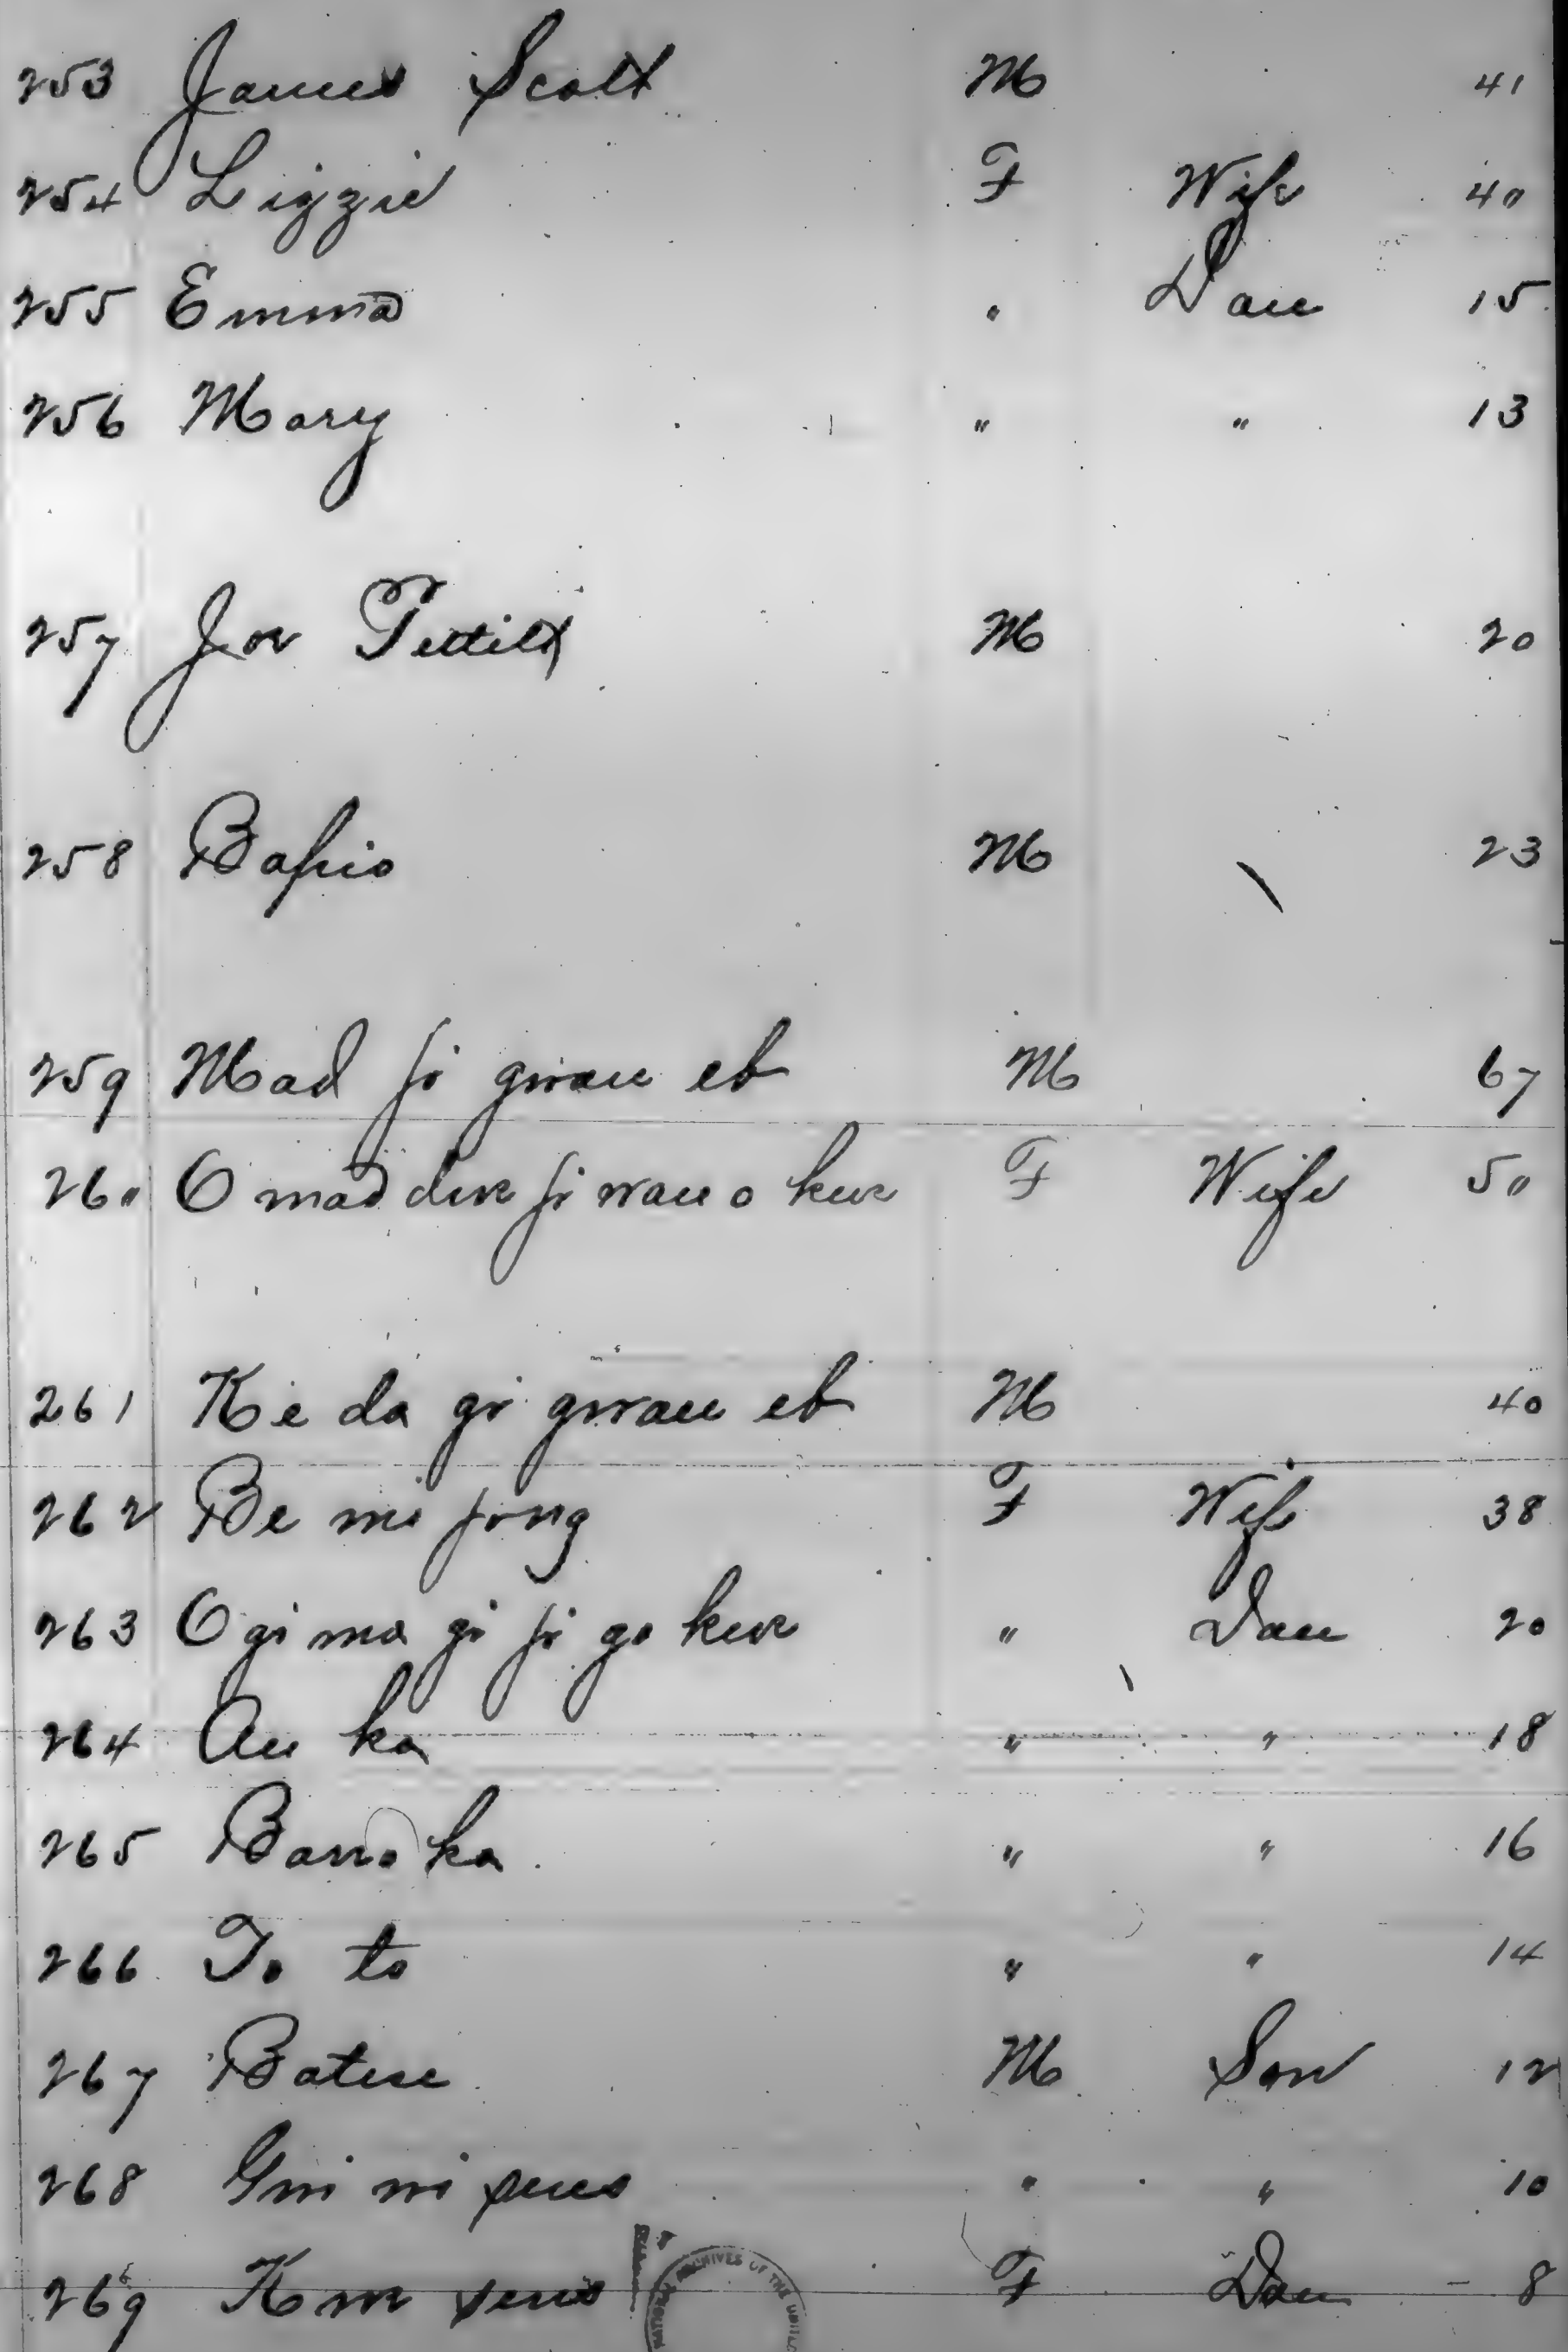 253 James Scott M 41
254 Lizzie F Wife 40
255 Emma " Dau 15
256 Mary " " 13
257 Joe Pettitt M 20
258 Bapio M 23
259 Mad ji gwau eb M 67
260 O mad dwe ji wau o kwe F Wife 50
261 Ke da gi gwau eb M 40
262 Be mi jong F Wife 38
263 O gi ma gi ji go kwe " Dau 20
264 Au ka " " 18
265 ka " " 16
266 To to " " 14
267 Batese M Son 12
268 " " 10
269 F Dau 8
ARCHIVES OF THE